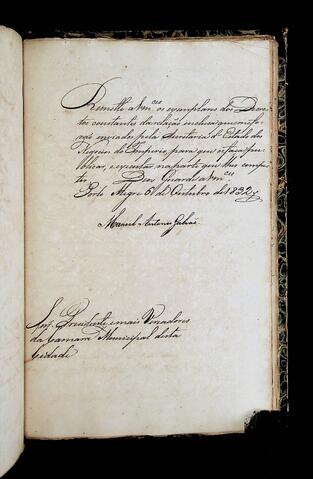 Remetto a Vm.ces os exemplares de Decre-
tos constantes da relação inclusa que me fo-
rão enviados pela Secretaria d'Estado dos
Negocios do Imperio para que os faça pu-
blicar, e executar na parte que lhes compe-
te. Deos Guarde a Vm.ces
Porto Alegre 6 de Outubro de 1832
Manoel Antonio Galvão
Snr.es Presidente e mais Vereadores
da Camara Municipal desta
Cidade